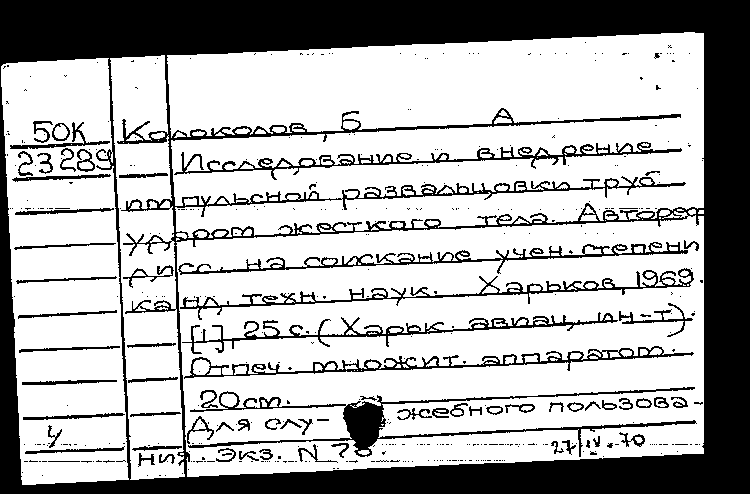 50К Колоколов, Б А
23289 Исследование и внедрение
импульсной развальцовки труб
ударом жесткого тела. Автореф
дисс. на соискание учен. степени
канд. техн. наук. Харьков, 1969.
[1], 25 с. (Харьк. авиац. ин-т).
Отпеч. множит. аппаратом.
20 см.
Для слу- жебного пользова-
У
ния. Экз. N
27/IV.70